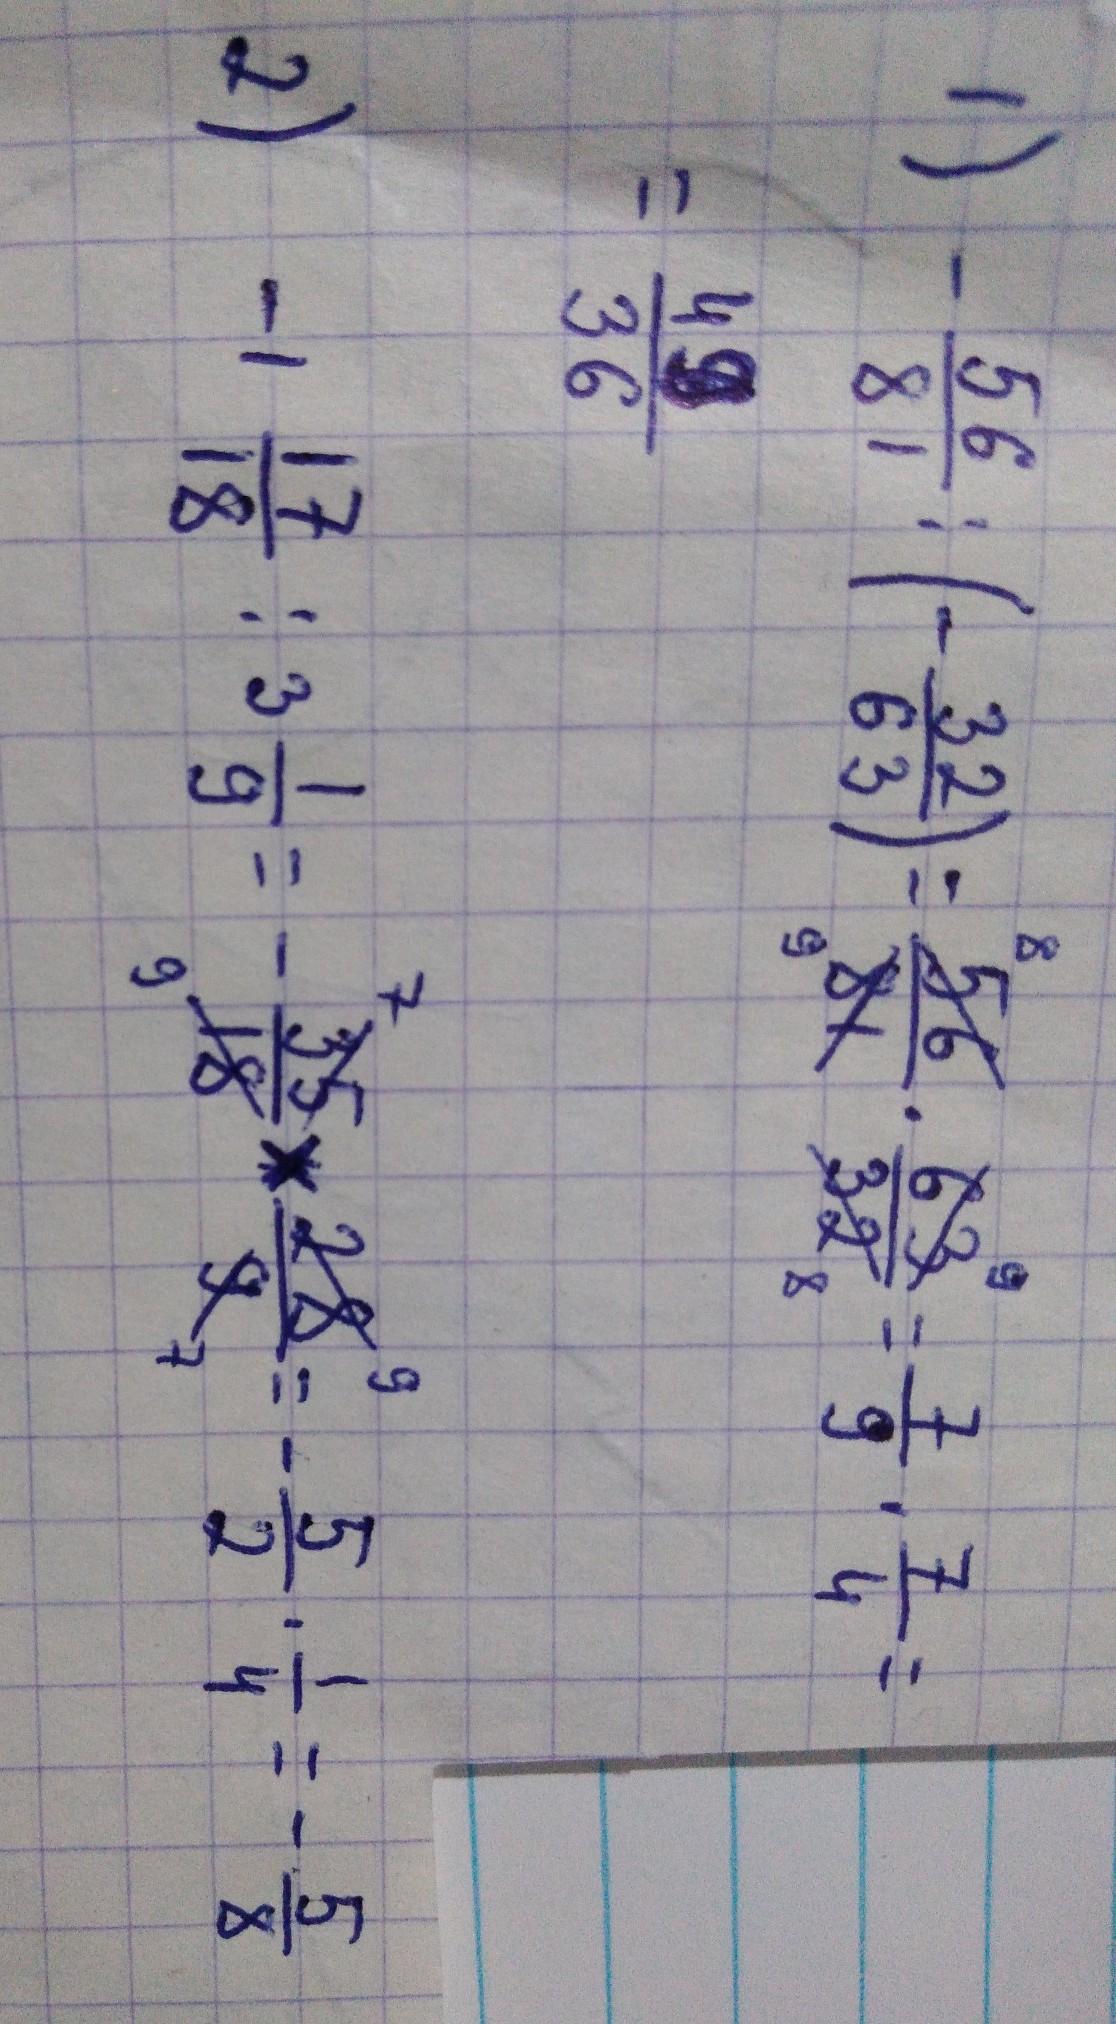 1) - 56/81 : (- 32/63) = 56/81 8 9 · 63/32 9 8 = 7/9 · 7/4 =
= 49/36
2) - 1 17/18 : 3 1/9 = - 35/18 7 9 × 28/9 9 7 = - 5/2 · 1/4 = - 5/8